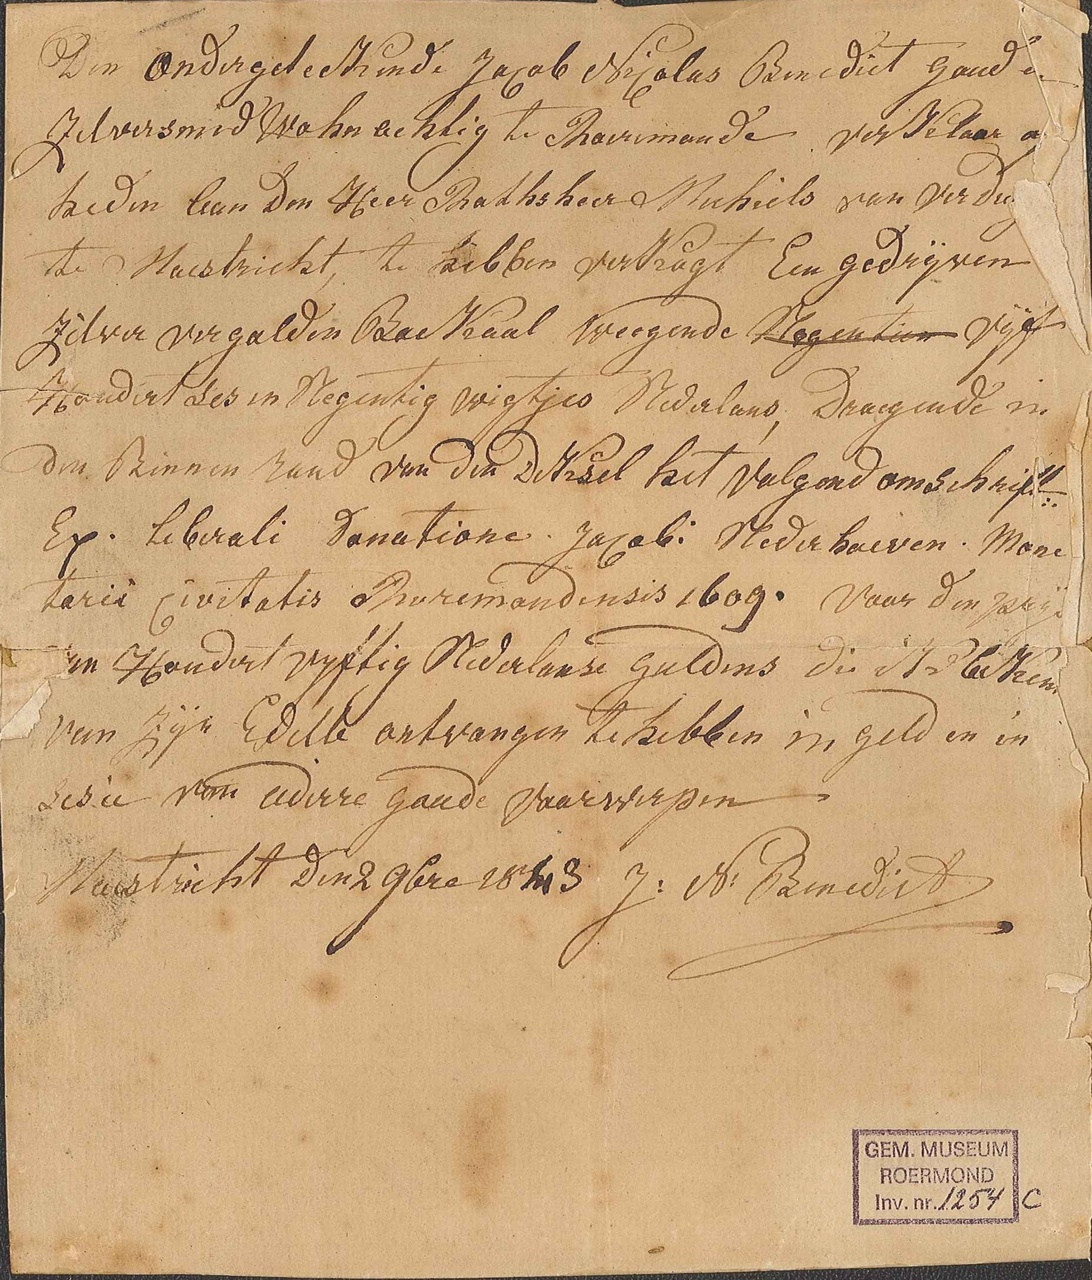 Den Ondergeteekende Jacob Nicolas Benedict Goud en
Zilversmid Wohnachtig te Roermonde verklaar op
heden aan Den Heer Rathsheer Michiels van Verduy
te Maestricht, te hebben verkogt Een gedrijven
Zilver vergulden Boekaal weegende Negentien vijf
Hondert ses en Negentig wigtjes Nederlans, Draegende in
den Binnen rand van den Deksel het Volgend omschrift:
Ex. Liberali Donatione. Jacobi Nederhoeven. Mone
tarii Civitatis Ruremondensis 1609. Voor den prijs
van Hondert vyftig Nederlanse guldens die ik bekenn
van Zijn Edelle ontvangen te hebben in geld en in
sesie van andere goude voorwerpen
Maestricht den 2 9bre 1843 J: N: Benedict
GEM. MUSEUM
ROERMOND
Inv. nr. 1254 C